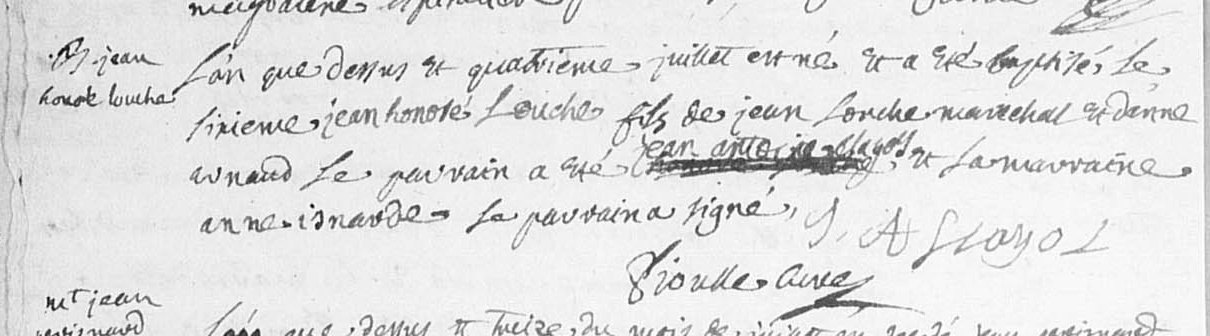 B. jean
honoré louche
L'an que dessus et quatrième juillet est né et a été baptisé le
sixieme jean honoré Louche fils de jean Louche marechal et d'anne
arnaud le parrain a été jean antoine et la marraine
anne isnarde le parrain a signé,
curé
mt jean
L'an que dessus et treize du mois de